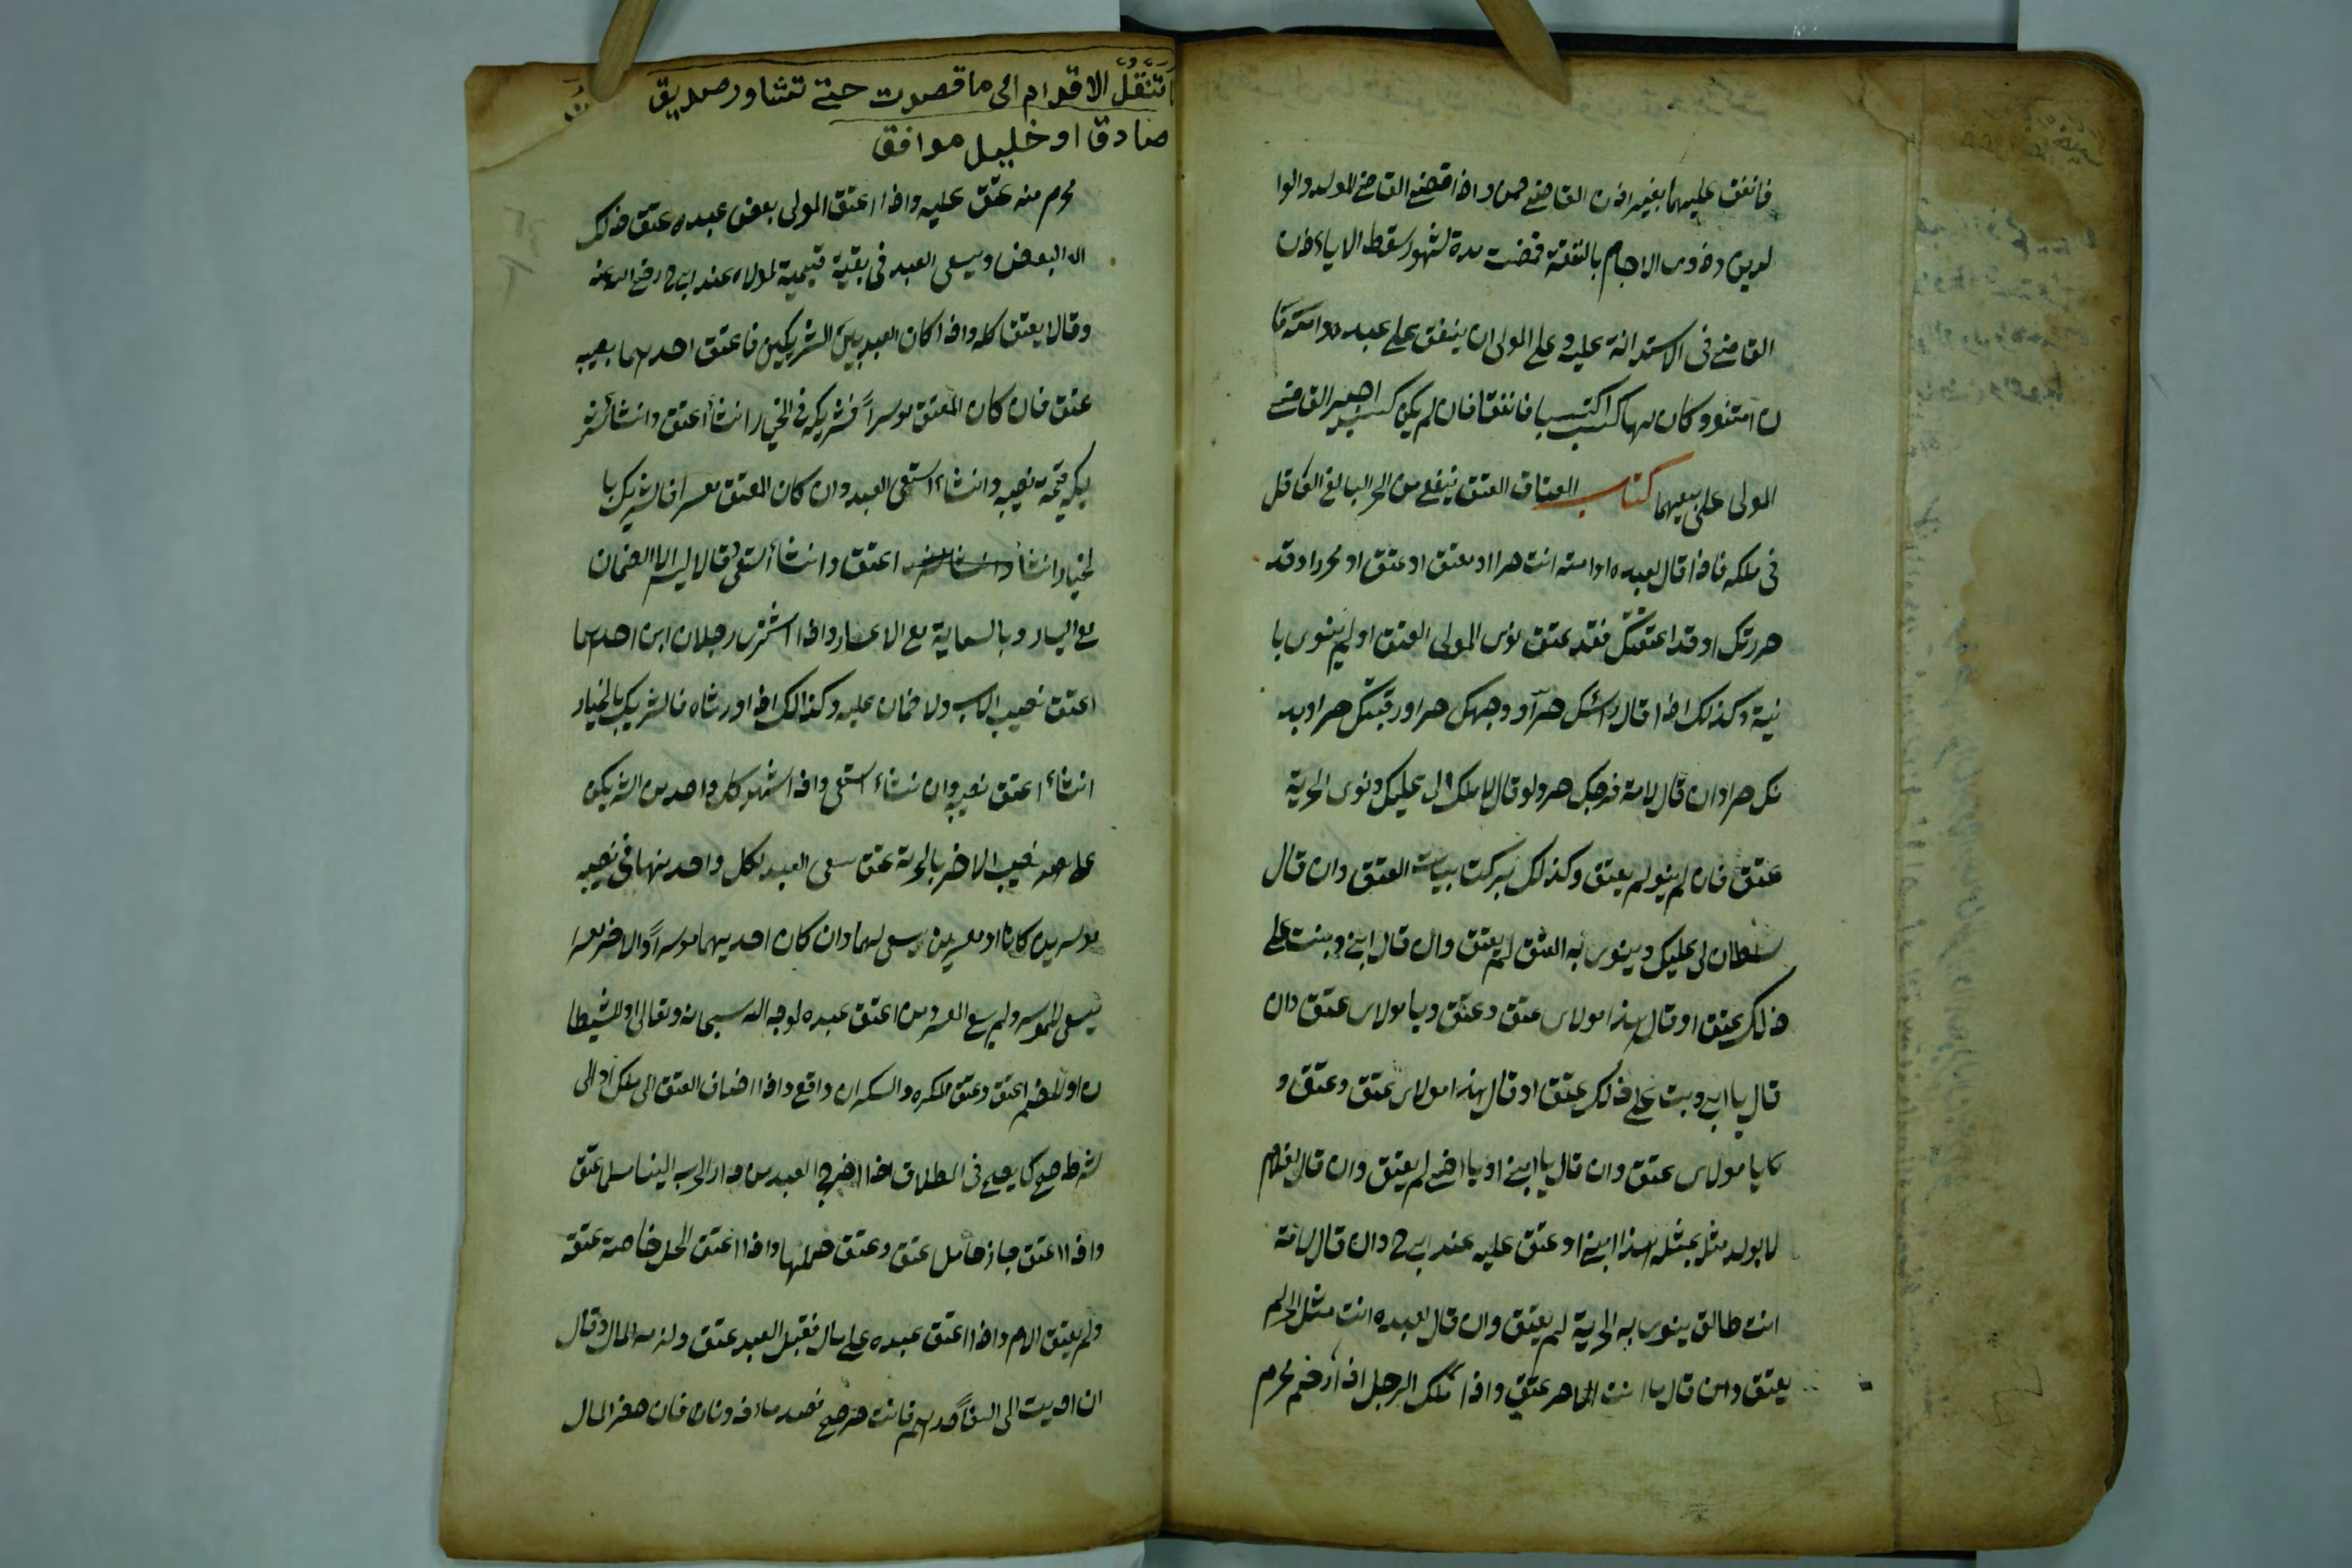 فانفق عليهما بغير اذن القاضي ضمن واذا قضي القاضي للولد والوا
لدين وذوى الارحام بالنفقة فمضت مدة لشهور سقط الا ياءذن
القاضي فى الاستدانة عليه وعلى المولى ان ينفق على عبده وامته فا
ن امتنوو كان لهما كسب اكتسبا فانفقا فان لم يكن كسب اجبر القاضي
المولى على بيعهما كتاب العتاق العتق ينفع من الحر البالغ العاقل
فى ملكه فاذا قال لعبده او امته انت حر او معتق او عتق او محرر او قد
حررتك او قد اعتقتك فقد عتق نوى المولى العتق او لم ينوى با
نية وكذلك اذا قال راسك حر او وجهك حر او رقبتك حر او بد
نك حر او ان قال لامة فرجك حر ولو قال لا ملك لى عليك ونوى الحرية
عتق فان لم ينو لم يعتق وكذلك كنايات العتق وان قال
سلطان لى عليك وينوى به العتق لم يعتق وان قال ابنى وبنت على
ذلك عتق او قال هذا مولاى عتق وعتق ويا مولاى عتق وان
قال يا ابى وبت على ذلك عتق او قال هذا مولاى عتق وعتق و
كايا مولاى عتق وان قال يا ابنى او يا اخى لم يعتق وان قال لغلام
لا يولد مثل بمثله هذا ابنى او عتق عليه عند ابى ح وان قال لامة
انت طالق ينوى به الحرية لم يعتق وان قال لعبده انت مثل الحر لم
يعتق وان قال ما انت الا حر عتق واذا ملك الرجل اذا رحم محرم
ما تنقل الاقدام الى ما قصدت حتى تتشاور صديق
صادق او خليل موافق
محرم منه عتق عليه واذا اعتق المولى بعض عبده عتق ذلك
الا البعض ويسعى العبد فى بقية قيمته لمولاه عند ابى ح رضي الله عنه
وقالا يعتق كله واذا كان العبد بين الشريكين فاعتق احدهما نصيبه
عتق فان كان المعتق موسرا فشريكه فى الخيار انشاء اعتق وانشاء ضمن
شريكه قيمة نصيبه وانشاء استسعى العبد وان كان المعتق معسرا فالشريك با
لخيار انشاء اعتق وانشاء استسعى وقالا ليس له الا الضمان
مع اليسار وبالسعاية مع الاعسار واذا اشترى رجلان ابن احدهما
اعتق نصيب الاب ولا ضمان عليه وكذالك اذا ورثاه فالشريك بالخيار
انشاء اعتق نصيبه وان شاء استسعى واذا شهد كل واحد من الشريكين
على نصيب الاخر بالحرية عتق سعى العبد لكل واحد منهما فى نصيبه
موسرين كانا او معسرين يسعى لهما وان كان احديهما موسرا والاخر معسرا
يسعى للموسر ولم يسع المعسر ومن اعتق عبده لوجه الله سبحانه وتعالى او للشيطا
ن او للصنم اعتق وعتق المكره والسكران واقع واذا اضاف العتق الى ملك او الى
شرط صح كما يصح فى الطلاق اذا خرج العبد من دار الحرب الينا مسلما عتق
واذا اعتق جاز حامل عتق وعتق حملها واذا اعتق الحمل خاصة عتق
ولم يعتق الام واذا اعتق عبده على مال فقبل العبد عتق ولزمه المال وقال
ان اديت الى الفا درهم فانت حر صح فصد ماذونا فان حضر المال